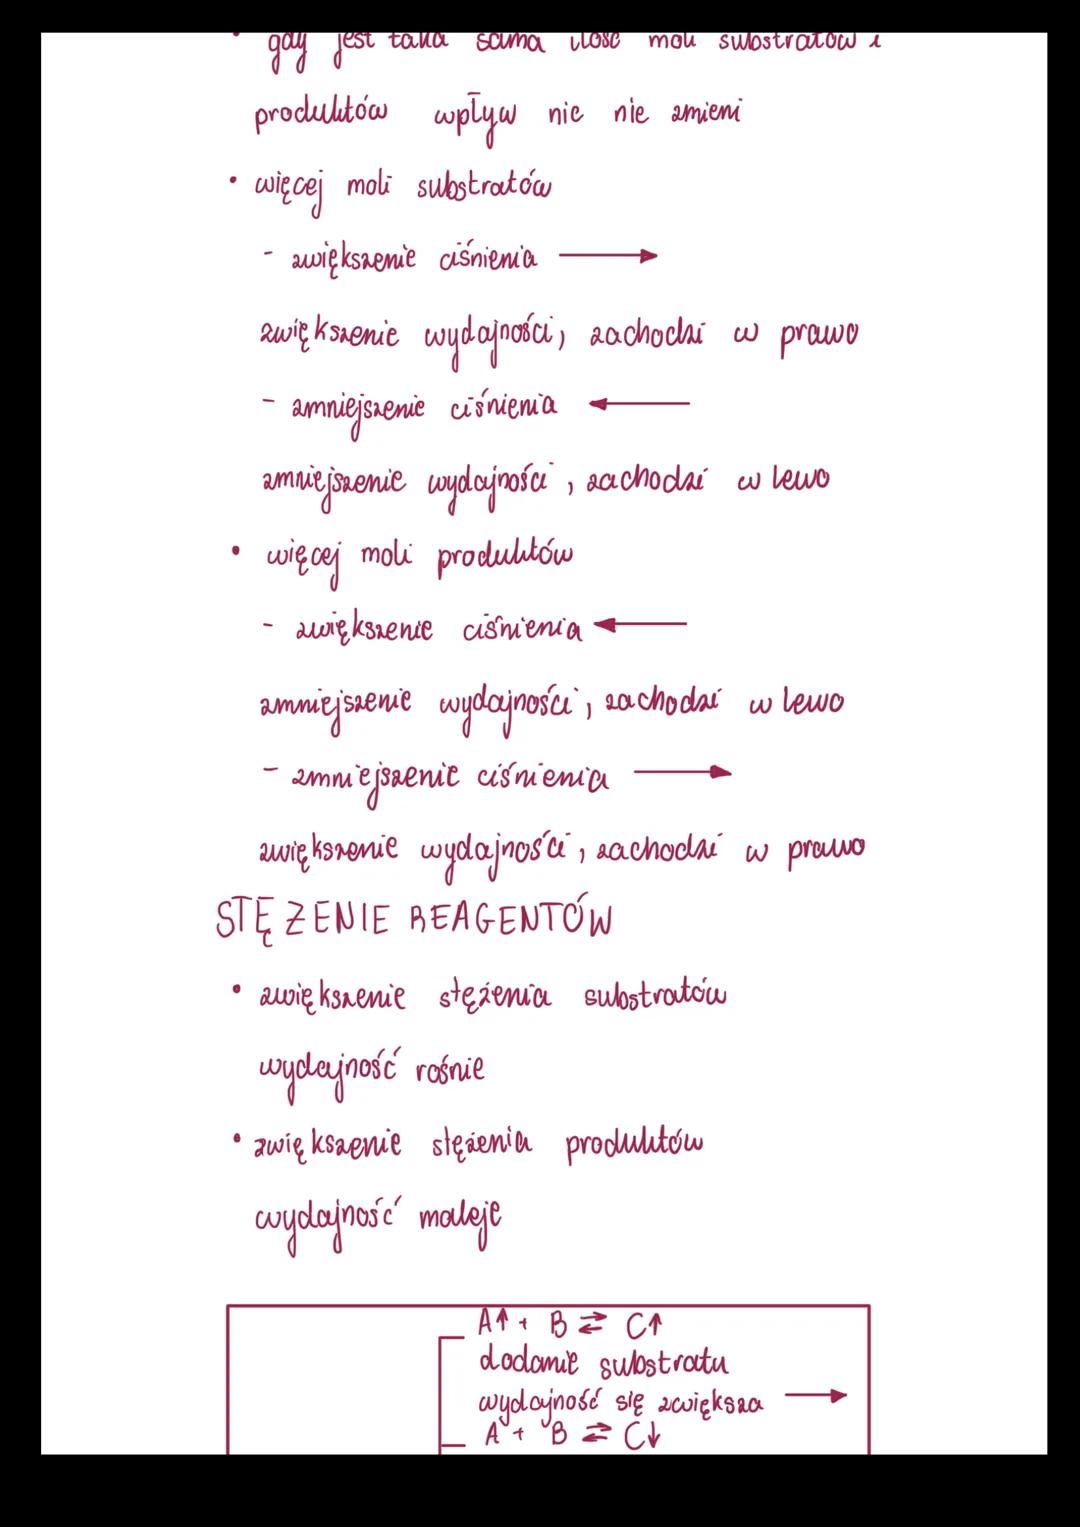 • gdy jest taka sama ilość moli substratów i
produktów wpływ nic nie zmieni
• więcej moli substratów
- zwiększenie ciśnienia →
zwiększenie wydajności, zachodzi w prawo
- zmniejszenie ciśnienia ←
zmniejszenie wydajności, zachodzi w lewo
• więcej moli produktów
- zwiększenie ciśnienia ←
zmniejszenie wydajności, zachodzi w lewo
- zmniejszenie ciśnienia →
zwiększenie wydajności, zachodzi w prawo
STĘŻENIE REAGENTÓW
• zwiększenie stężenia substratów
wydajność rośnie
• zwiększenie stężenia produktów
wydajność maleje
A↑ + B ⇄ C↑
dodanie substratu
wydajność się zwiększa →
A + B ⇄ C↓